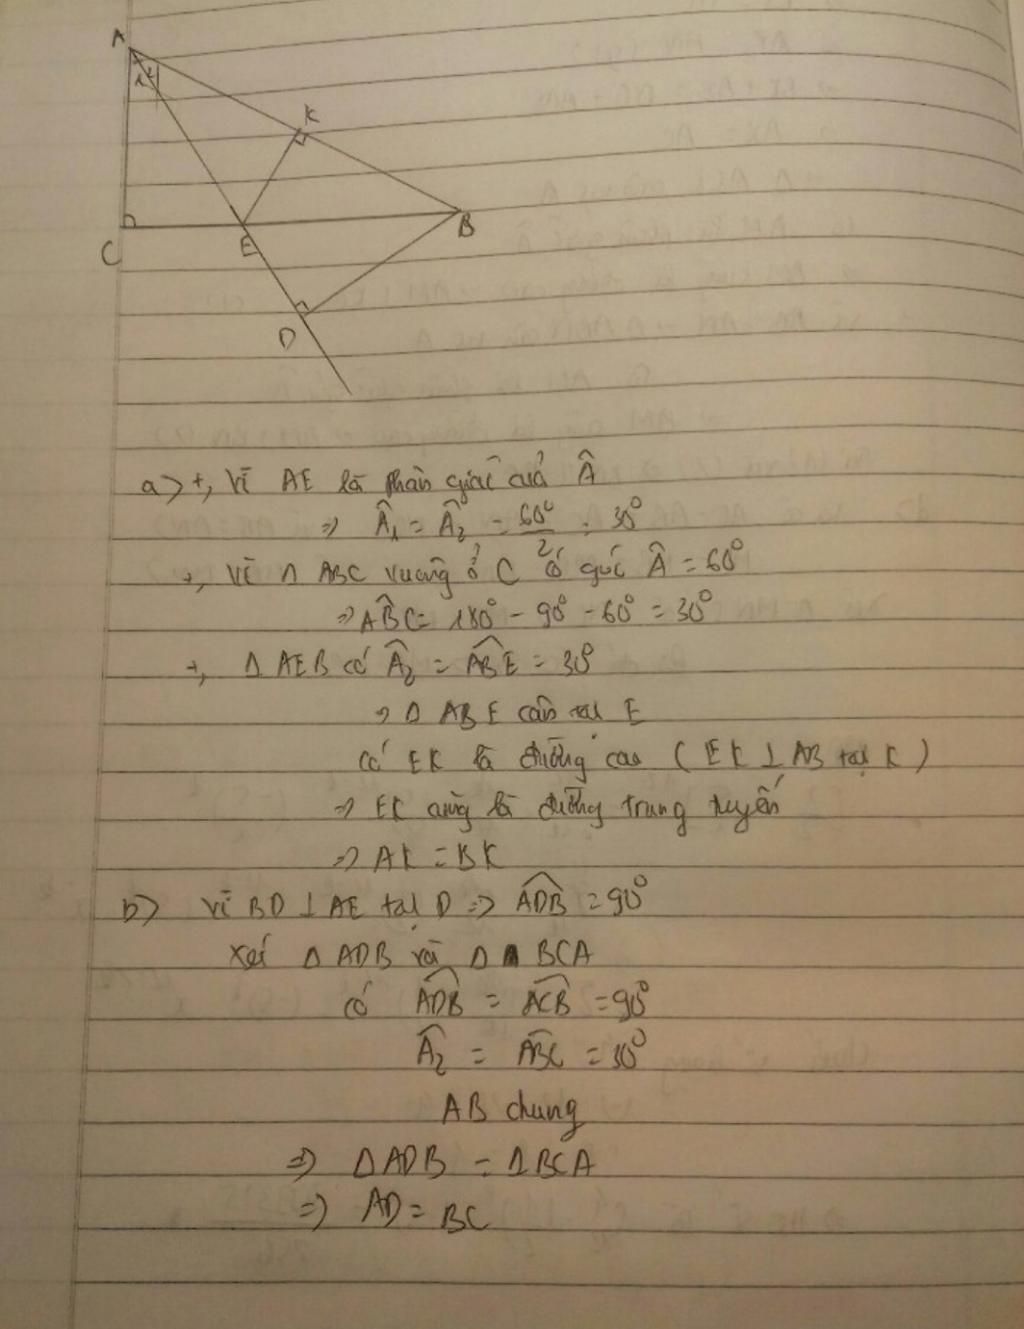 A
1 2
K
B
C
E
D
a> +, Vì AE là phân giác của Â
=> Â₁ = Â₂ = 60⁰/2 = 30⁰
+, Vì Δ ABC vuông ở C có góc Â = 60⁰
=> ABC = 180⁰ - 90⁰ - 60⁰ = 30⁰
+, Δ AEB có Â₂ = ABE = 30⁰
=> Δ ABE cân tại E
có EK là đường cao ( EK ⊥ AB tại K )
=> EK cũng là đường trung tuyến
=> AK = BK
b> Vì BD ⊥ AE tại D => ADB = 90⁰
Xét Δ ADB và Δ BCA
có ADB = ACB = 90⁰
Â₂ = ABC = 30⁰
AB chung
=> Δ ADB = Δ BCA
=> AD = BC